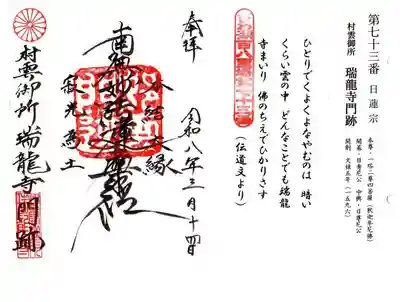 第七十三番 日蓮宗
村雲御所 瑞龍寺門跡
本尊・一塔二尊四菩薩（釈迦牟尼佛）
開基・日秀尼公 中興・日尊尼公
開創 文禄五年（一五九六）
ひとりでくよくよなやむのは 暗い
くらい雲の中 どんなことでも瑞龍
寺まいり 佛のちえでひかりさす
（伝道文より）
奉拝 令和八年三月十四日
南無妙法蓮華経
水結文縁
寂光為土
村雲御所 瑞龍寺門跡